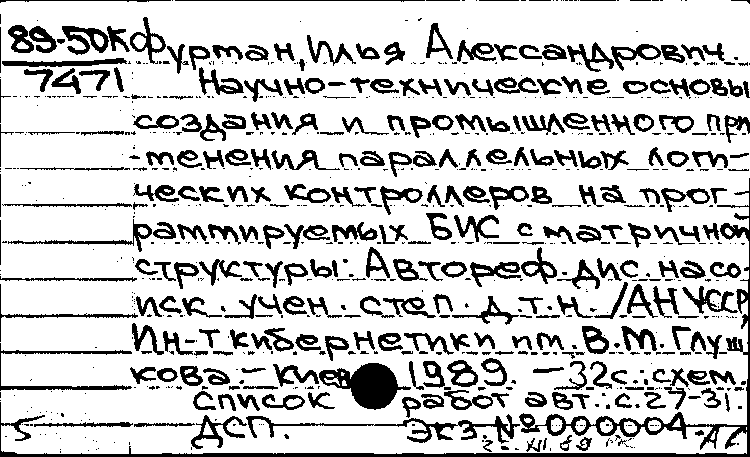 89-50К
7471
Фурман, Илья Александрович.
Научно-технические основы
создания и промышленного при-
менения параллельных логи-
ческих контроллеров на прог-
раммируемых БИС с матричной
структуры: Автореф. дис. на со
иск. учен. степ. д.т.н. /АН УССР,
Ин-т кибернетики им. В.М. Глуш
кова. - Киев 1989. - 32с.: схем.
Список работ авт.: с.27-31.
5 ДСП. Экз. №000004.